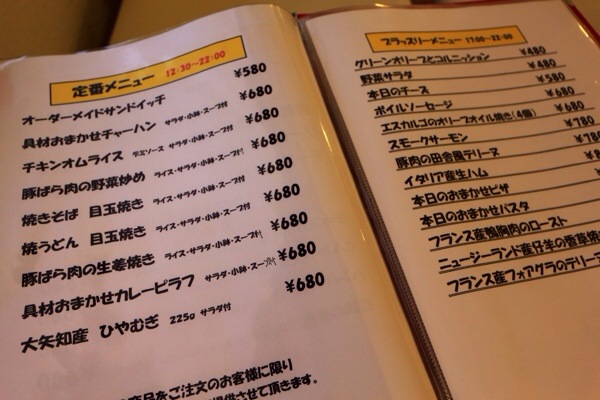 定番メニュー 12:30~22:00
オーダーメイドサンドイッチ ¥580
具材おまかせチャーハン サラダ・小鉢・スープ付 ¥680
チキンオムライス デミソース サラダ・小鉢・スープ付 ¥680
豚ばら肉の野菜炒め ライス・サラダ・小鉢・スープ付 ¥680
焼きそば 目玉焼き ライス・サラダ・小鉢・スープ付 ¥680
焼うどん 目玉焼き ライス・サラダ・小鉢・スープ付 ¥680
豚ばら肉の生姜焼き ライス・サラダ・小鉢・スープ付 ¥680
具材おまかせカレーピラフ サラダ・小鉢・スープ付 ¥680
大矢知産 ひやむぎ 225g サラダ付 ¥680
商品をご注文のお客様に限り
提供させて頂きます。
ブラッスリーメニュー 17:00~22:00
グリーンオリーブとコルニッション ¥480
野菜サラダ ¥480
本日のチーズ ¥580
ボイルソーセージ ¥680
エスカルゴのオリーブオイル焼き(4個) ¥680
スモークサーモン ¥780
豚肉の田舎風テリーヌ ¥780
イタリア産生ハム
本日のおまかせピザ
本日のおまかせパスタ
フランス産鴨胸肉のロースト
ニュージーランド産仔羊の香草焼
フランス産フォアグラのテリーヌ